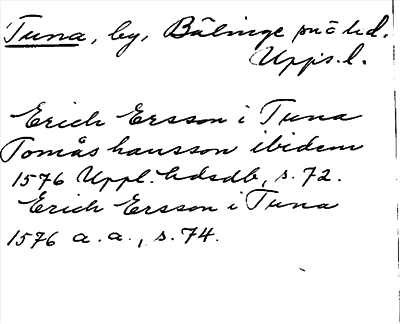 Tuna, by, Bälinge sn o hd.
Upps. l.
Erich Ersson i Tuna
Tomås hansson ibidem
1576 Uppl. hdsdb, s. 72.
Erich Ersson i Tuna
1576 a. a., s. 74.